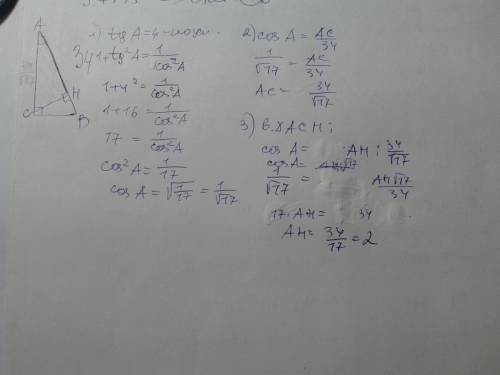 A
34
C
H
B
1) tg A = 4
1 + tg²A = 1/cos²A
1 + 4² = 1/cos²A
1 + 16 = 1/cos²A
17 = 1/cos²A
cos²A = 1/17
cos A = √(1/17) = 1/√17
2) cos A = AC/34
1/√17 = AC/34
AC = 34/√17
3) в ΔACH:
cos A = AH : 34/√17
cos A =
1/√17 = AH√17/34
17·AH = 34
AH = 34/17 = 2